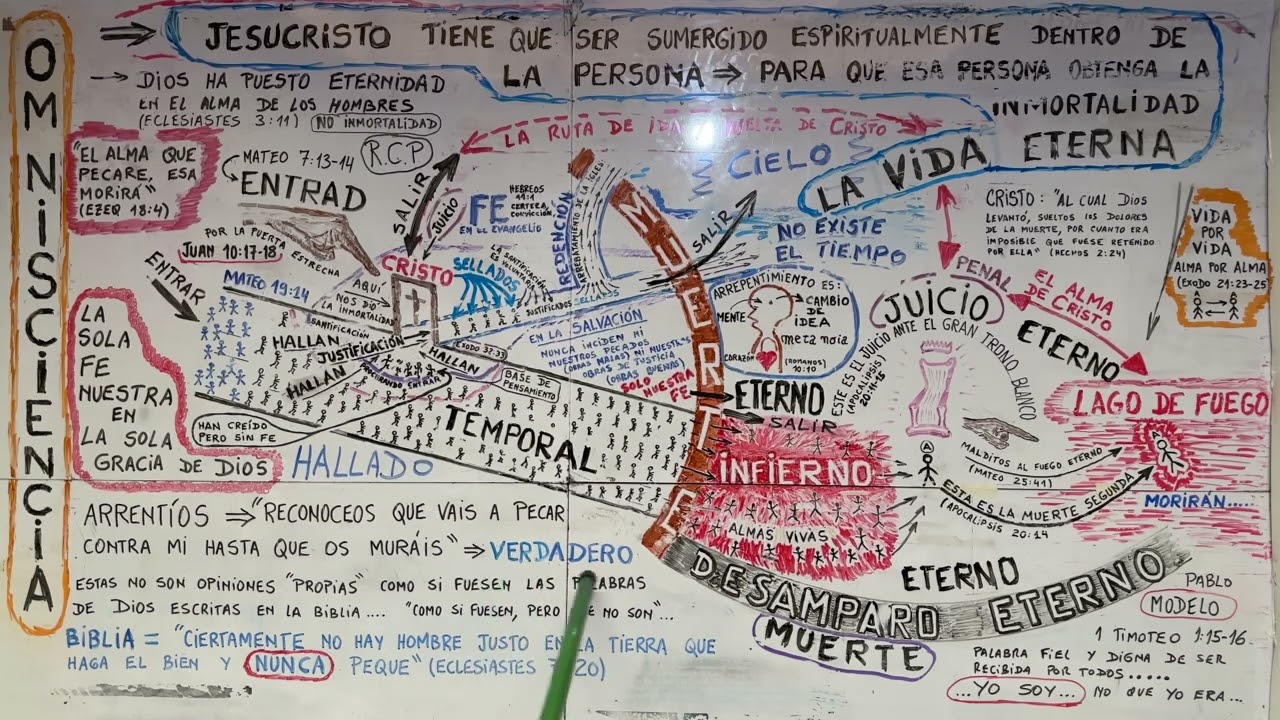 OMNISCIENCIA
⇒ JESUCRISTO TIENE QUE SER SUMERGIDO ESPIRITUALMENTE DENTRO DE
LA PERSONA ⇒ PARA QUE ESA PERSONA OBTENGA LA
INMORTALIDAD
ETERNA
→ DIOS HA PUESTO ETERNIDAD
EN EL ALMA DE LOS HOMBRES
(ECLESIASTES 3:11) NO INMORTALIDAD
"EL ALMA QUE
PECARE, ESA
MORIRÁ"
(EZEQ 18:4)
MATEO 7:13-14
ENTRAD
R.C.P
LA RUTA DE IDA VUELTA DE CRISTO
CIELO
LA VIDA
SALIR
JUICIO
FE
EN EL EVANGELIO
HEBREOS
11:1
CERTEZA,
CONVICCIÓN
REDENCIÓN
ARREBATAMIENTO DE LA IGLESIA
MUERTE
SALIR
NO EXISTE
EL TIEMPO
CRISTO: "AL CUAL DIOS
LEVANTÓ, SUELTOS LOS DOLORES
DE LA MUERTE, POR CUANTO ERA
IMPOSIBLE QUE FUESE RETENIDO
POR ELLA" (HECHOS 2:24)
VIDA
POR
VIDA
ALMA POR ALMA
(EXODO 21:23-25)
POR LA PUERTA
ESTRECHA
JUAN 10:17-18
ENTRAR
MATEO 19:14
CRISTO
SELLADOS
LA SANTIFICACIÓN
JUSTIFICADOS
SELLADOS
AQUÍ
NOS DIO
LA INMORTALIDAD
SANTIFICACIÓN
HALLAN
JUSTIFICACIÓN
HALLAN
PROCURARÁN ENTRAR
HALLAN
ÉXODO 37:33
BASE DE
PENSAMIENTO
EN LA SALVACIÓN
NUNCA INCIDEN NI
NUESTROS PECADOS
(OBRAS MALAS) NI NUESTRAS
OBRAS DE JUSTICIA
(OBRAS BUENAS)
SOLO
NUESTRA
FE
ARREPENTIMIENTO ES:
CAMBIO
DE
IDEA
metanoia
MENTE
CORAZÓN
(ROMANOS
10:10)
PENAL
JUICIO
ANTE EL GRAN TRONO BLANCO
ESTE ES EL JUICIO
(APOCALIPSIS
20:11-15)
EL ALMA
DE CRISTO
ETERNO
LAGO DE FUEGO
LA
SOLA
FE
NUESTRA
EN
LA SOLA
GRACIA DE DIOS
HAN CREÍDO
PERO SIN FE
TEMPORAL
HALLADO
ETERNO
SALIR
INFIERNO
ALMAS VIVAS
MALDITOS AL FUEGO ETERNO
(MATEO 25:41)
ESTA ES LA MUERTE SEGUNDA
(APOCALIPSIS 20:14
MORIRÁN.....
ARRENTÍOS ⇒ "RECONOCEOS QUE VAIS A PECAR
CONTRA MI HASTA QUE OS MURÁIS" ⇒ VERDADERO
ESTAS NO SON OPINIONES "PROPIAS" COMO SI FUESEN LAS PALABRAS
DE DIOS ESCRITAS EN LA BIBLIA.... "COMO SI FUESEN, PERO NO SON"...
BIBLIA = "CIERTAMENTE NO HAY HOMBRE JUSTO EN LA TIERRA QUE
HAGA EL BIEN Y NUNCA PEQUE" (ECLESIASTES 7 20)
DESAMPARO ETERNO
ETERNO
MUERTE
PABLO
MODELO
1 TIMOTEO 1:15-16
PALABRA FIEL Y DIGNA DE SER
RECIBIDA POR TODOS.....
...YO SOY... NO QUE YO ERA...